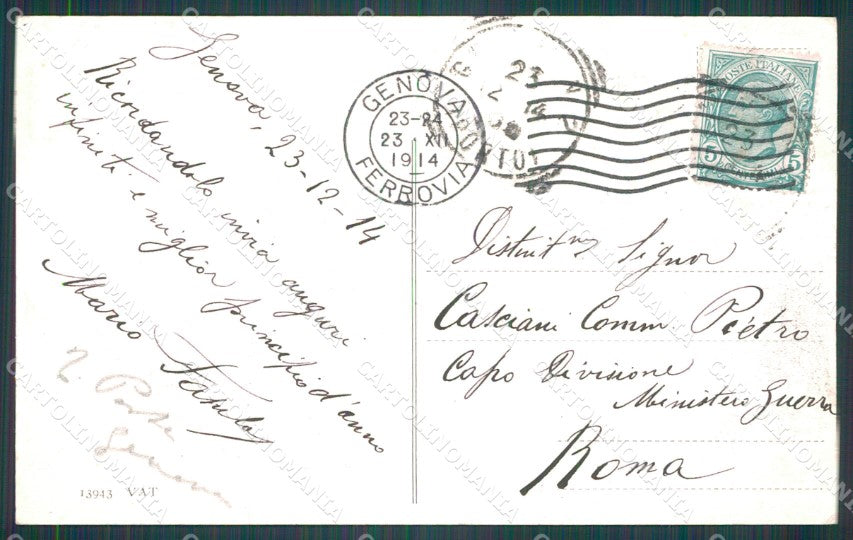 Genova, 23-12-14
Ricordandolo invia auguri
infiniti e miglior principio d'anno
Mario
R. Poste
Genova
13943 VAT
GENOVA
23-24
23 XII
1914
FERROVIA
23
POSTE ITALIANE
5 5
Distint mo Signor
Casciani Comm Pietro
Capo Divisione
Ministero Guerra
Roma
CARTOLINOMANIA